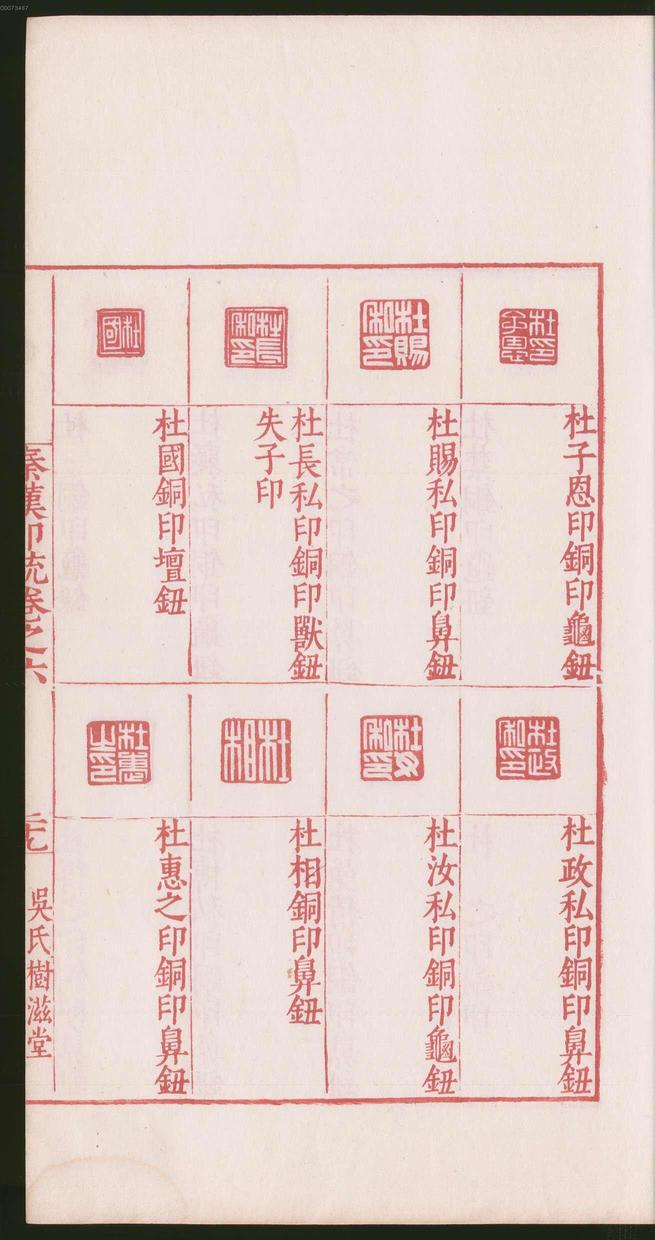 杜子恩印銅印龜鈕
杜賜私印銅印鼻鈕
杜長私印銅印獸鈕
失子印
杜國銅印壇鈕
杜政私印銅印鼻鈕
杜汝私印銅印龜鈕
杜相銅印鼻鈕
杜惠之印銅印鼻鈕
秦漢印統卷之六
吳氏樹滋堂
00073467